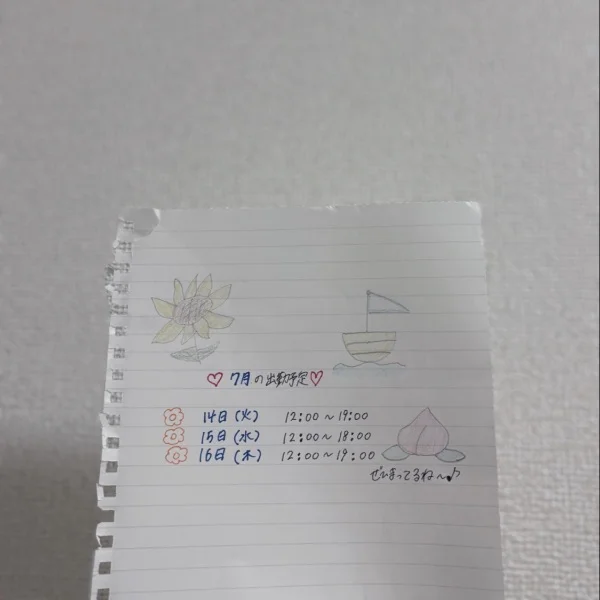 ♡ 7月の出勤予定♡
14日(火) 12:00～19:00
15日(水) 12:00～18:00
16日(木) 12:00～19:00
ぜひまってるね～♪